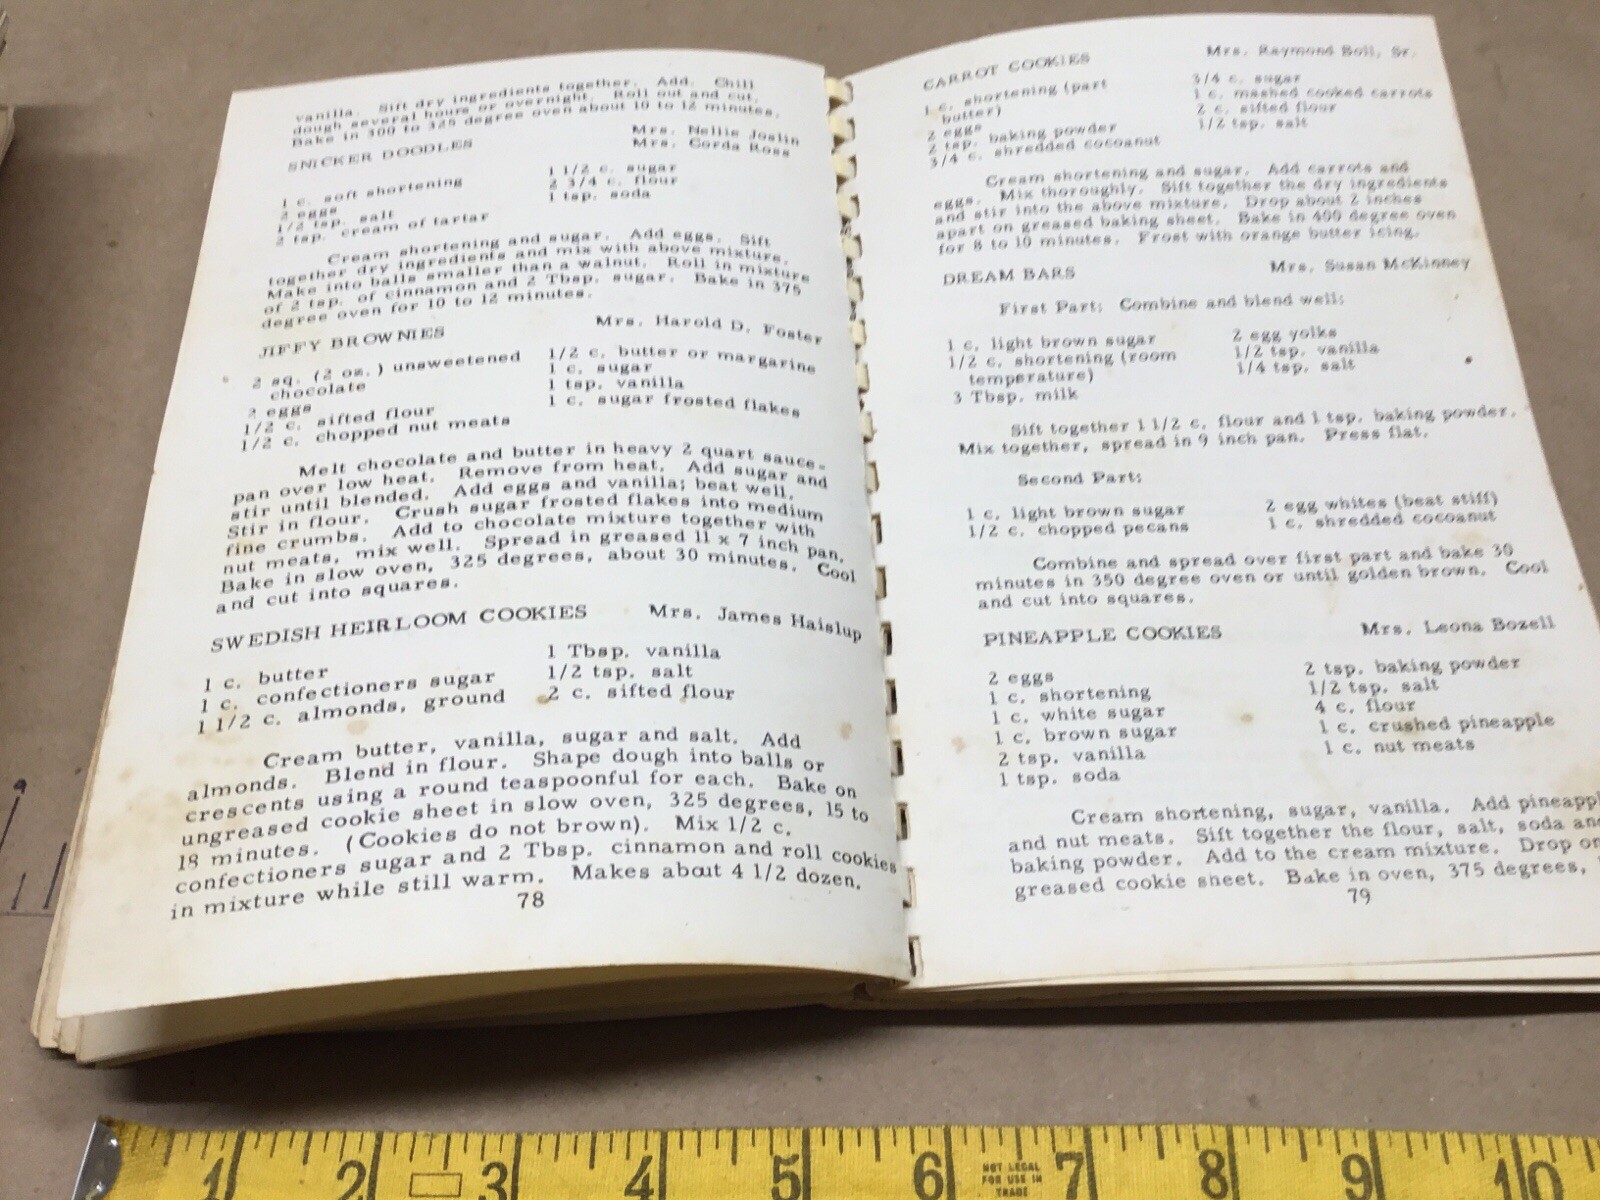 vanilla. Sift dry ingredients together. Add. Chill
dough several hours or overnight. Roll out and cut.
Bake in 300 to 325 degree oven about 10 to 12 minutes.
Mrs. Nellie Joslin
SNICKER DOODLES Mrs. Corda Ross
1 c. soft shortening 1 1/2 c. sugar
2 eggs 2 3/4 c. flour
1/2 tsp. salt 1 tsp. soda
2 tsp. cream of tartar
Cream shortening and sugar. Add eggs. Sift
together dry ingredients and mix with above mixture.
Make into balls smaller than a walnut. Roll in mixture
of 2 tsp. of cinnamon and 2 Tbsp. sugar. Bake in 375
degree oven for 10 to 12 minutes.
JIFFY BROWNIES Mrs. Harold D. Foster
2 sq. (2 oz.) unsweetened 1/2 c. butter or margarine
chocolate 1 c. sugar
2 eggs 1 tsp. vanilla
1/2 c. sifted flour 1 c. sugar frosted flakes
1/2 c. chopped nut meats
Melt chocolate and butter in heavy 2 quart sauce-
pan over low heat. Remove from heat. Add sugar and
stir until blended. Add eggs and vanilla; beat well.
Stir in flour. Crush sugar frosted flakes into medium
fine crumbs. Add to chocolate mixture together with
nut meats, mix well. Spread in greased 11 x 7 inch pan.
Bake in slow oven, 325 degrees, about 30 minutes. Cool
and cut into squares.
SWEDISH HEIRLOOM COOKIES Mrs. James Haislup
1 c. butter 1 Tbsp. vanilla
1 c. confectioners sugar 1/2 tsp. salt
1 1/2 c. almonds, ground 2 c. sifted flour
Cream butter, vanilla, sugar and salt. Add
almonds. Blend in flour. Shape dough into balls or
crescents using a round teaspoonful for each. Bake on
ungreased cookie sheet in slow oven, 325 degrees, 15 to
18 minutes. (Cookies do not brown). Mix 1/2 c.
confectioners sugar and 2 Tbsp. cinnamon and roll cookies
in mixture while still warm. Makes about 4 1/2 dozen.
78
CARROT COOKIES Mrs. Raymond Boll, Sr.
1 c. shortening (part 3/4 c. sugar
butter) 1 c. mashed cooked carrots
2 eggs 2 c. sifted flour
2 tsp. baking powder 1/2 tsp. salt
3/4 c. shredded cocoanut
Cream shortening and sugar. Add carrots and
eggs. Mix thoroughly. Sift together the dry ingredients
and stir into the above mixture. Drop about 2 inches
apart on greased baking sheet. Bake in 400 degree oven
for 8 to 10 minutes. Frost with orange butter icing.
DREAM BARS Mrs. Susan McKinney
First Part: Combine and blend well:
1 c. light brown sugar 2 egg yolks
1/2 c. shortening (room 1/2 tsp. vanilla
temperature) 1/4 tsp. salt
3 Tbsp. milk
Sift together 1 1/2 c. flour and 1 tsp. baking powder.
Mix together, spread in 9 inch pan. Press flat.
Second Part:
1 c. light brown sugar 2 egg whites (beat stiff)
1/2 c. chopped pecans 1 c. shredded cocoanut
Combine and spread over first part and bake 30
minutes in 350 degree oven or until golden brown. Cool
and cut into squares.
PINEAPPLE COOKIES Mrs. Leona Bozell
2 eggs 2 tsp. baking powder
1 c. shortening 1/2 tsp. salt
1 c. white sugar 4 c. flour
1 c. brown sugar 1 c. crushed pineapple
2 tsp. vanilla 1 c. nut meats
1 tsp. soda
Cream shortening, sugar, vanilla. Add pineappl
and nut meats. Sift together the flour, salt, soda and
baking powder. Add to the cream mixture. Drop on
greased cookie sheet. Bake in oven, 375 degrees,
79
1 2 3 4 5 6 7 8 9 10
NOT LEGAL
FOR USE IN
TRADE
9
11